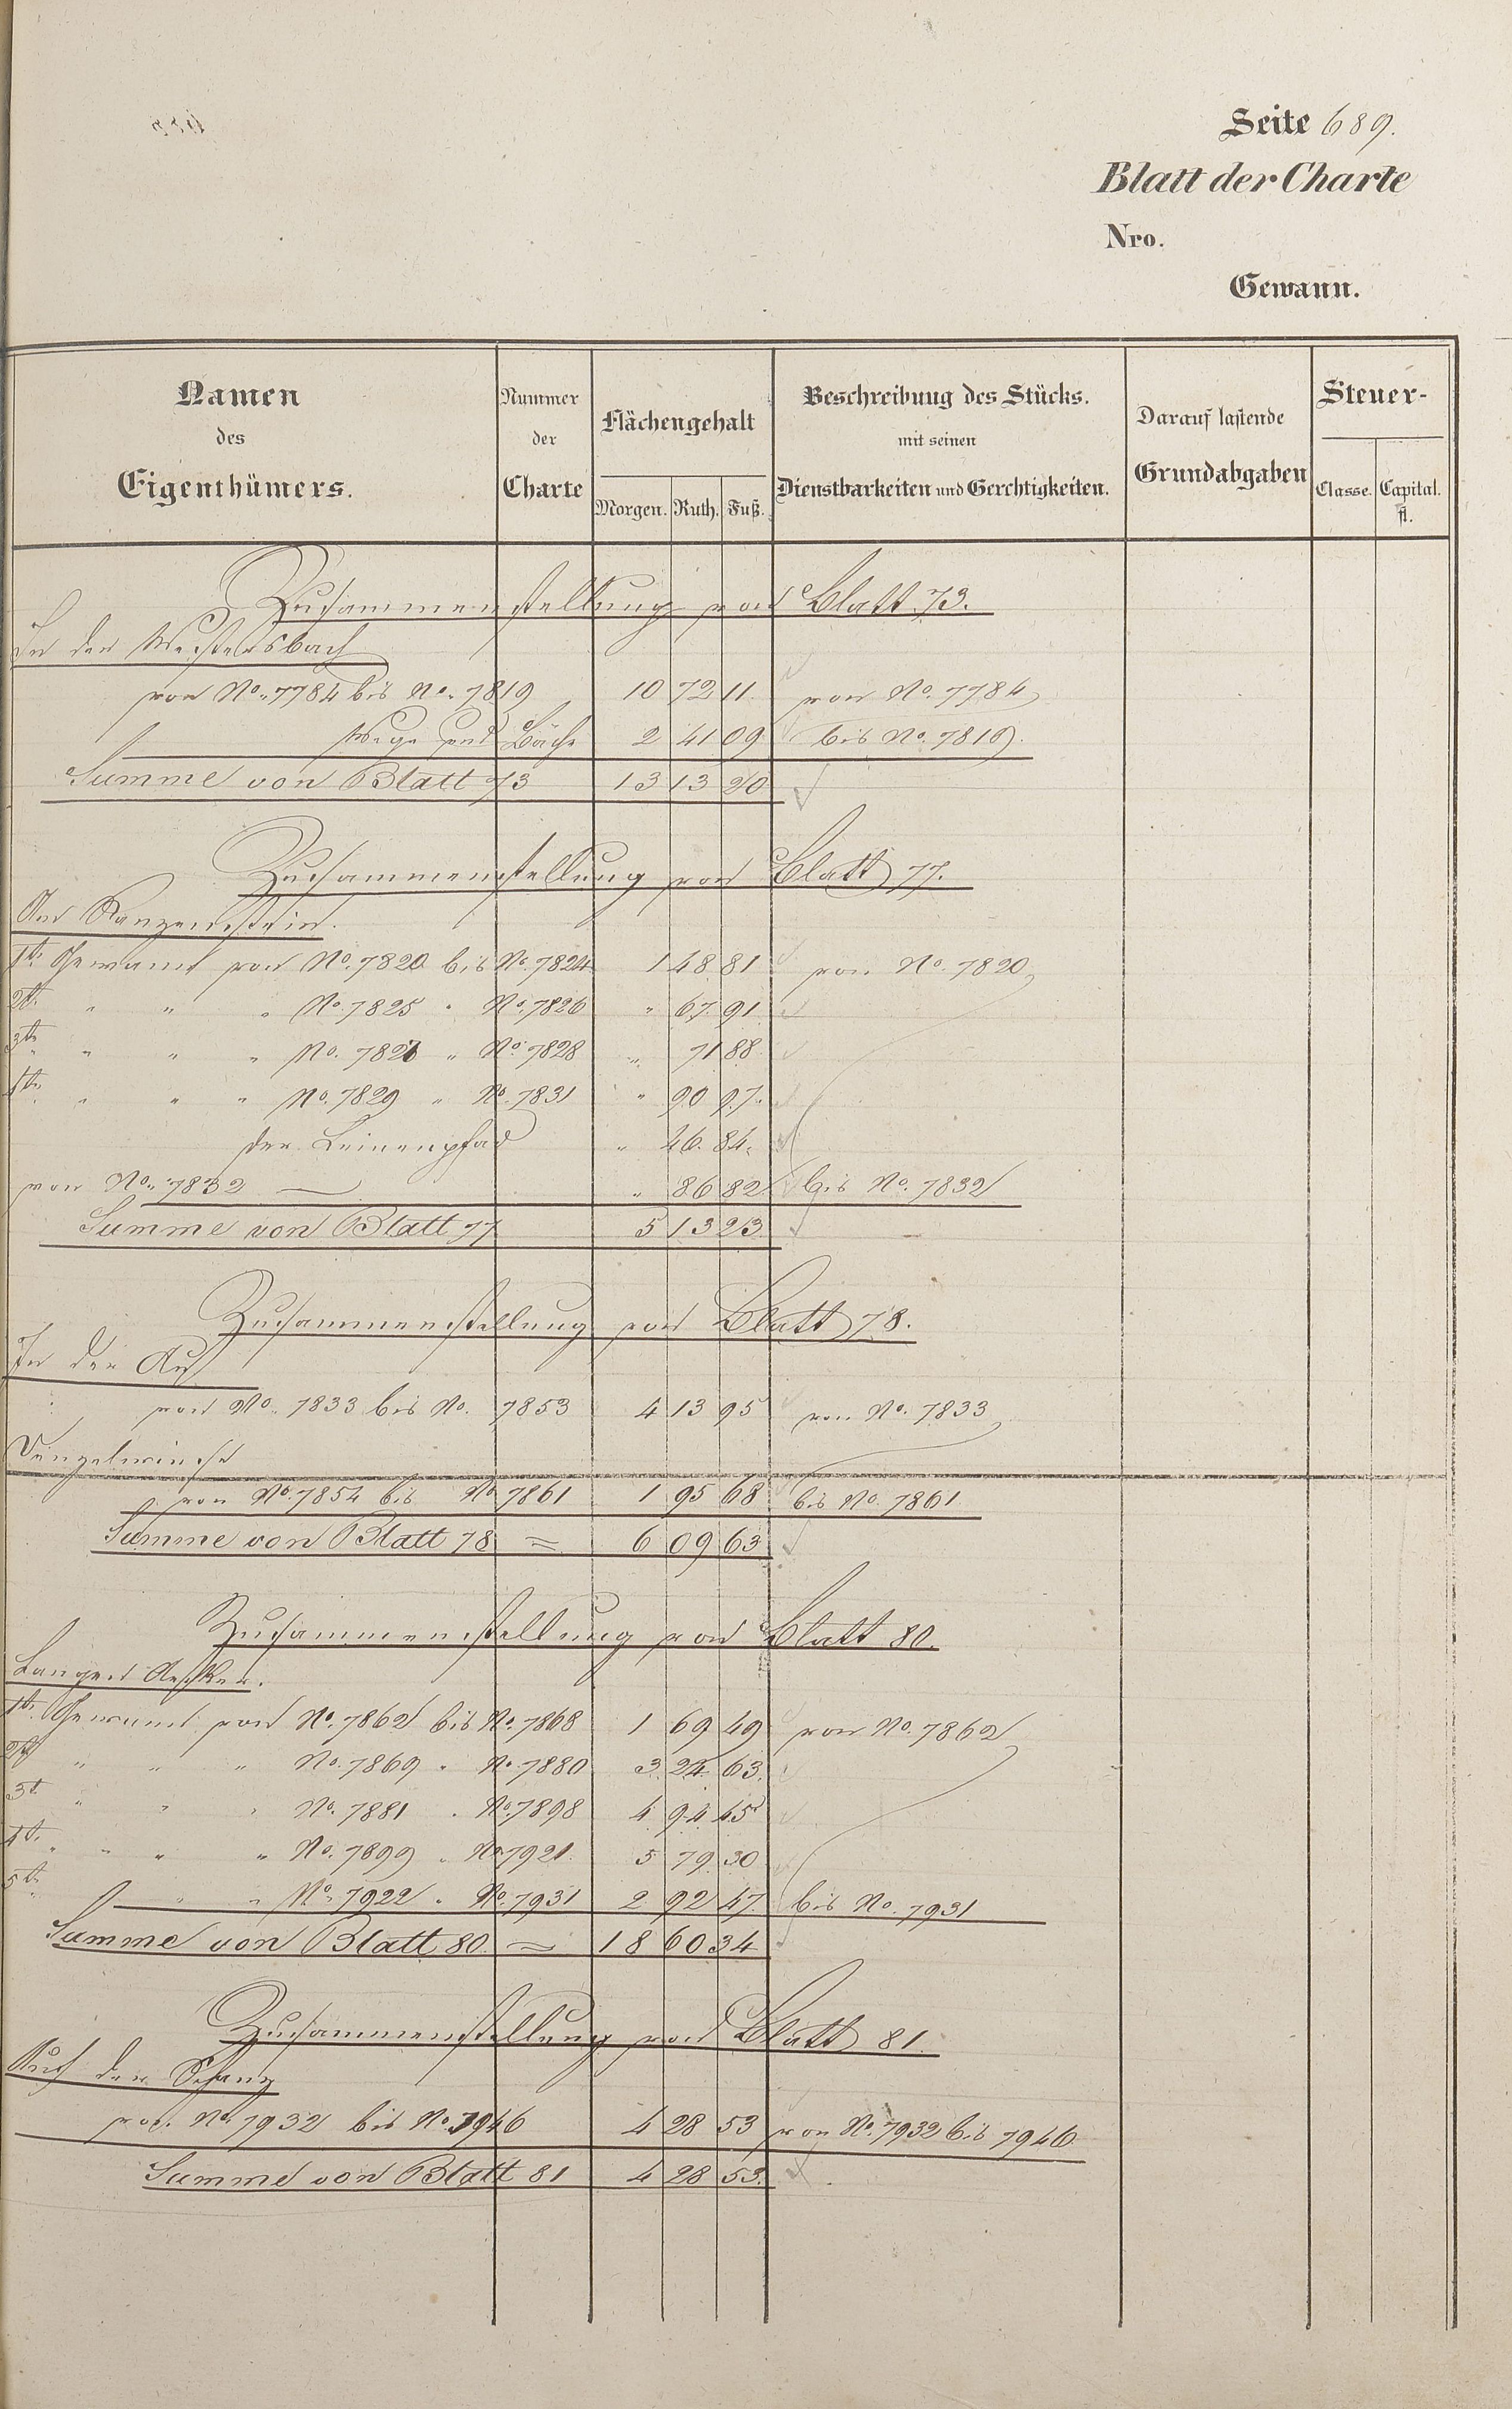 Seite 689.
Blatt der Charte
Nro.
Gewann.
Namen des Eigenthümers.
Nummer der Charte
Flächengehalt
Morgen. Ruth. Fuß.
Beschreibung des Stücks. mit seinen Dienstbarkeiten und Gerechtigkeiten.
Darauf lastende Grundabgaben
Steuer-
Classe. Capital. fl.
Zusammenstellung von Blatt 73.
In der
von No. 7784 bis No. 7819 10 72 11. von No. 7784
Wege und Bäche 2 41 09 bis No. 7819.
Summe von Blatt 73 13 13 20
Zusammenstellung von Blatt 77.
Am
1te Gewann von No. 7820 bis No. 7824 1 48 81 von No. 7820
2te " " " No. 7825 " No. 7826 " 67 91
3te " " " No. 7827 " No. 7828 " 71 88
4te " " " No. 7829 " No. 7831 " 90 97.
der Leinenpfad " 46. 84.
von No. 7832 — " 86 82 bis No. 7832
Summe von Blatt 77 5 13 23
Zusammenstellung von Blatt 78.
In der Au
von No. 7833 bis No. 7853 4 13 95 von No. 7833
von No. 7854 bis No. 7861 1 95 68 bis No. 7861
Summe von Blatt 78 = 6 09 63
Zusammenstellung von Blatt 80.
Langen Aecker.
1te Gewann von No. 7862 bis No. 7868 1 69 49 von No. 7862
2te " " " No. 7869 " No. 7880 3 24 63.
3te " " " No. 7881 " No. 7898 4 94 45
4te " " " No. 7899 " No. 7921 5 79 30
5te " " No. 7922 " No. 7931 2 92 47. bis No. 7931
Summe von Blatt 80 = 18 60 34
Zusammenstellung von Blatt 81.
Auf der Schanz
von No. 7932 bis No. 7946 4 28 53 von No. 7932 bis 7946
Summe von Blatt 81 4 28 53.